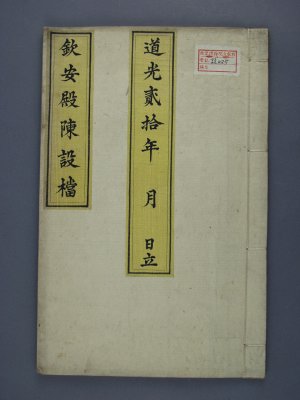 道光貳拾年 月 日立
欽安殿陳設檔